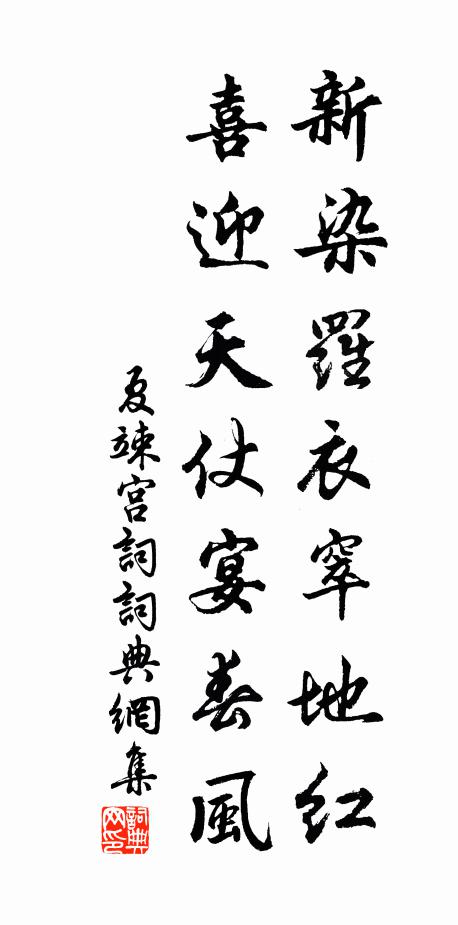 新染羅衣窣地紅
喜迎天仗宴春風
夏竦宮詞詞典網集
詞典網印